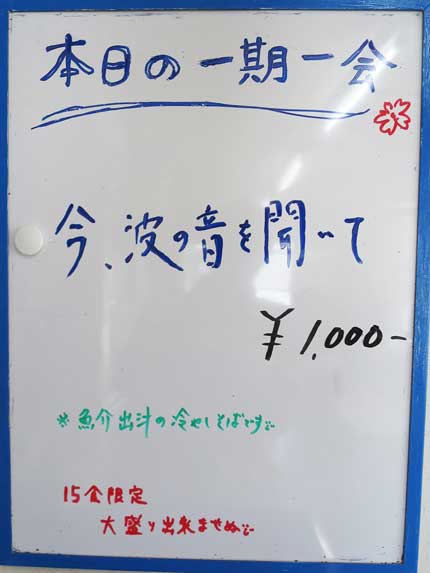 本日の一期一会
今、波の音を聞いて
¥1,000-
※魚介出汁の冷やしそばです
15食限定
大盛り出来ませぬ